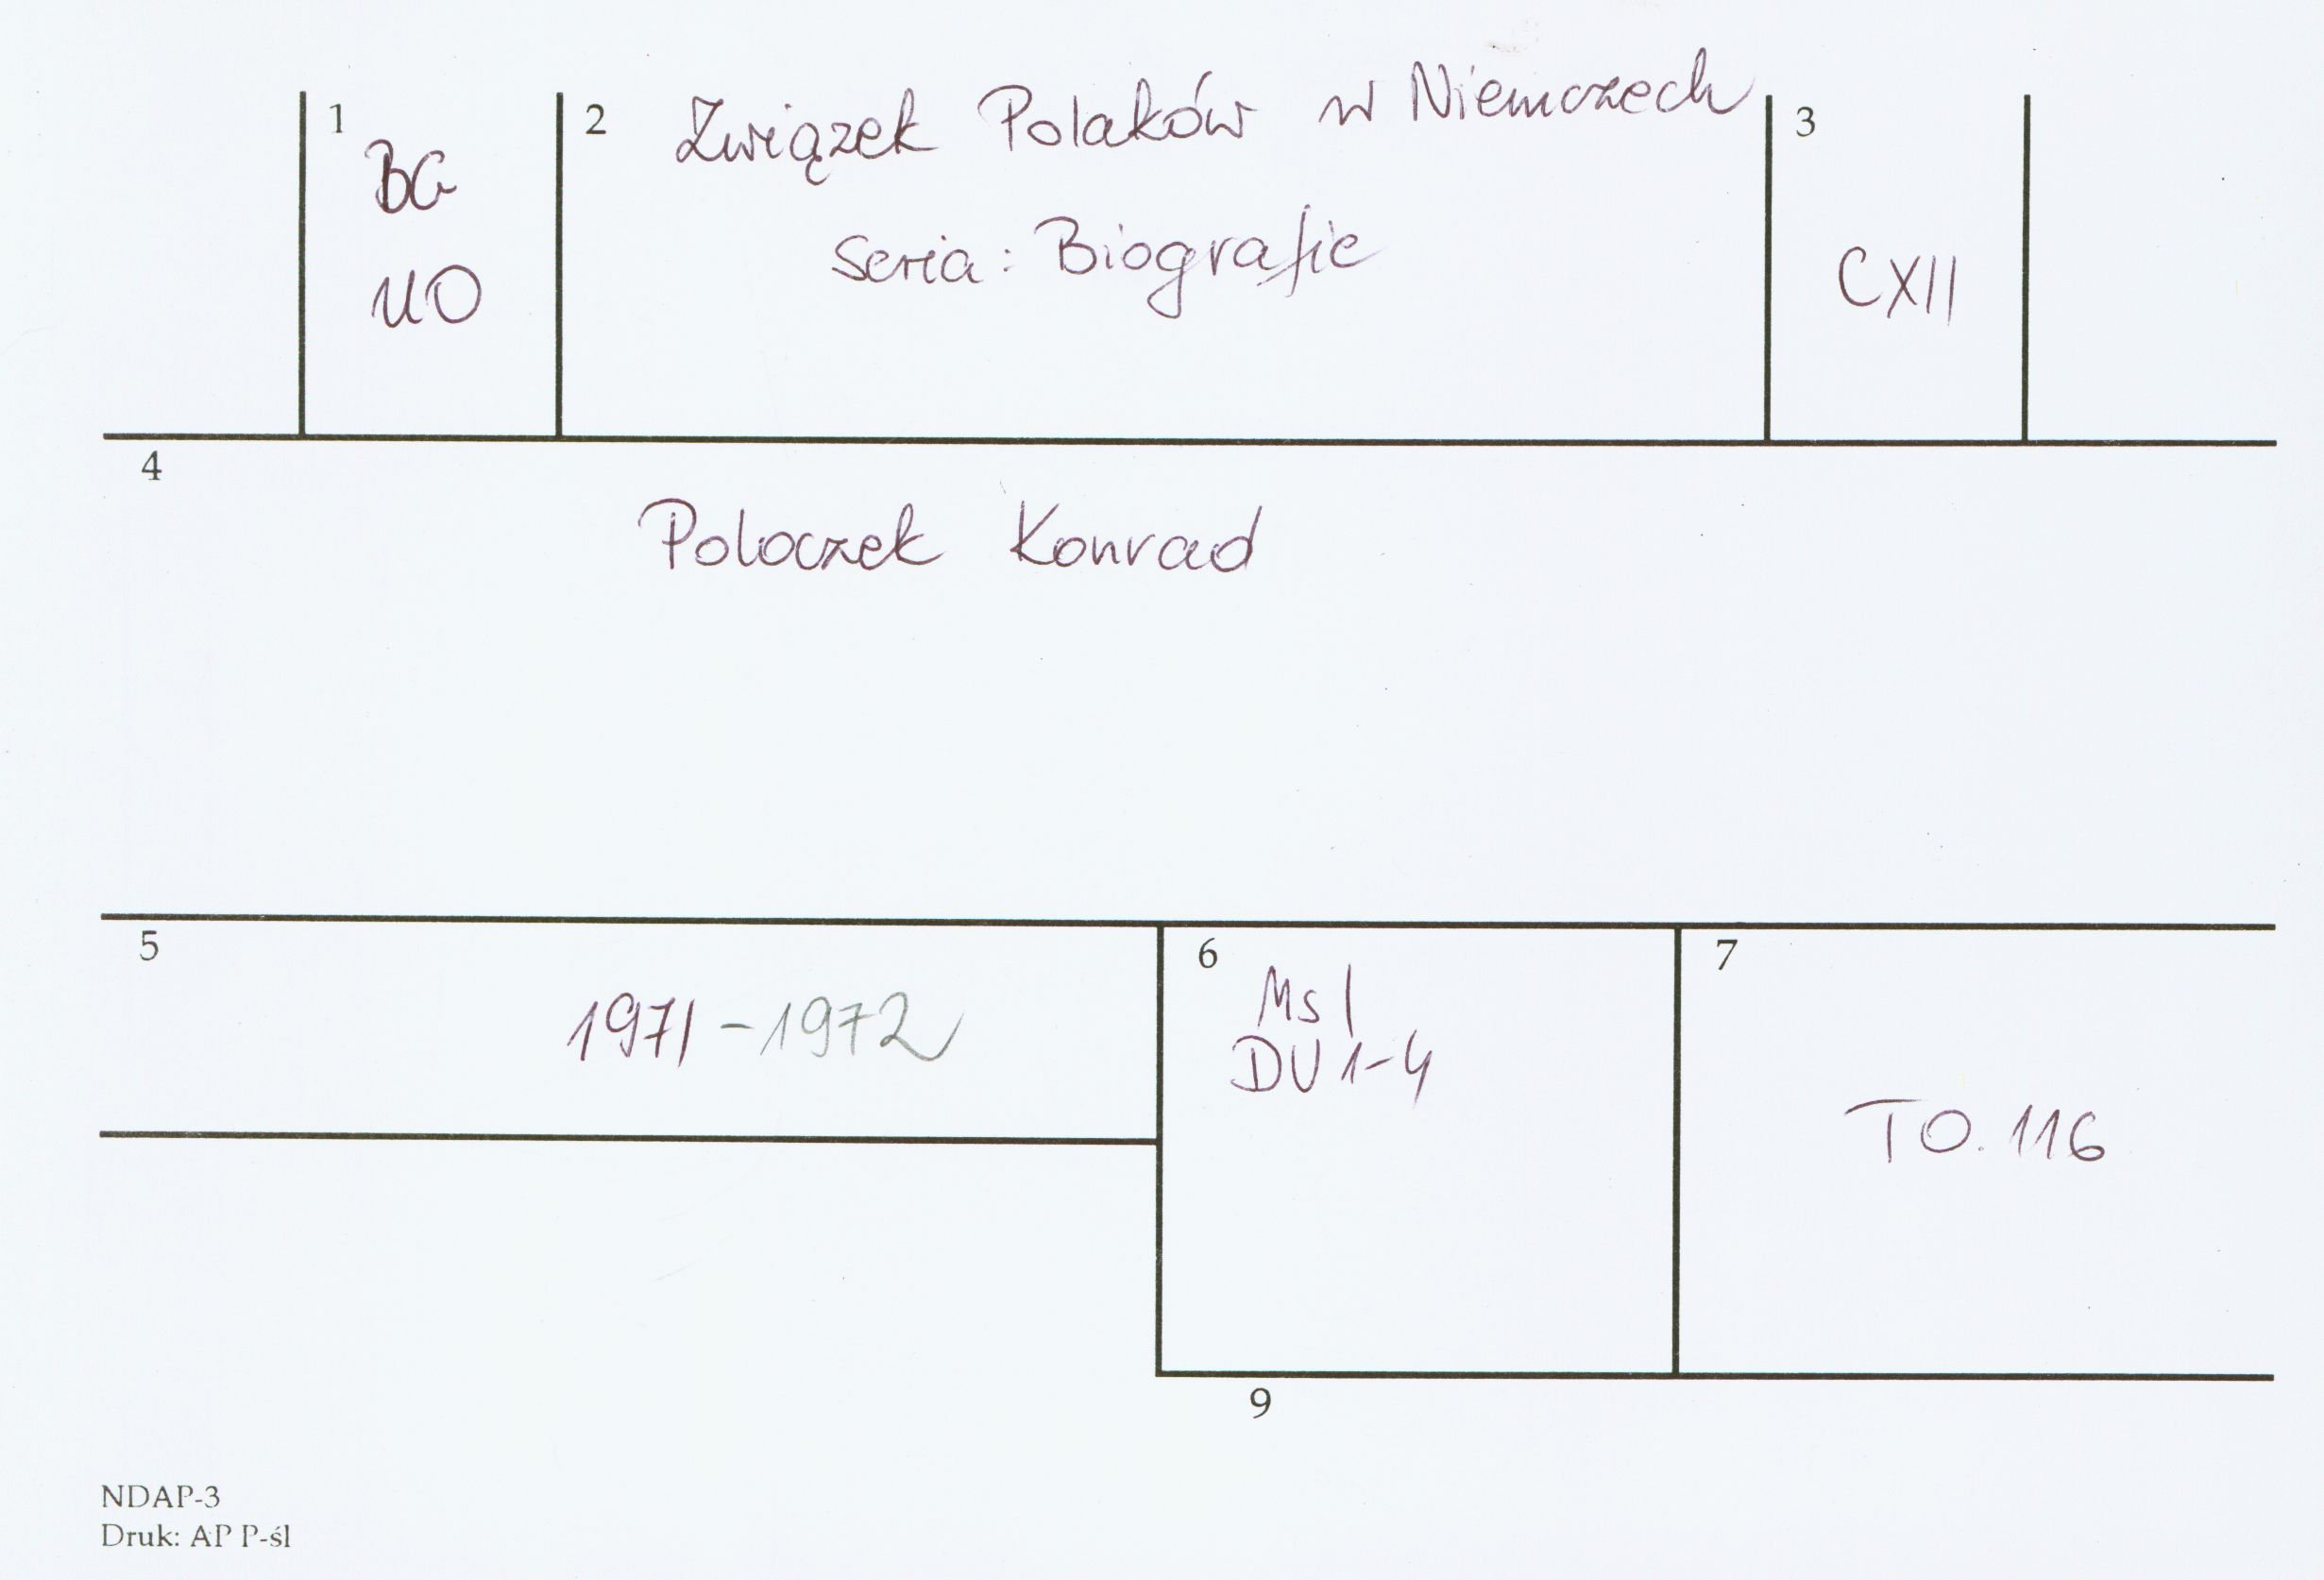 1
BG
UO
2 Związek Polaków w Niemczech
seria: Biografie
3
CXII
4
Poloczek Konrad
5
1971-1972
6
Ms I
DU 1-4
7
TO. 116
9
NDAP-3
Druk: AP P-śl